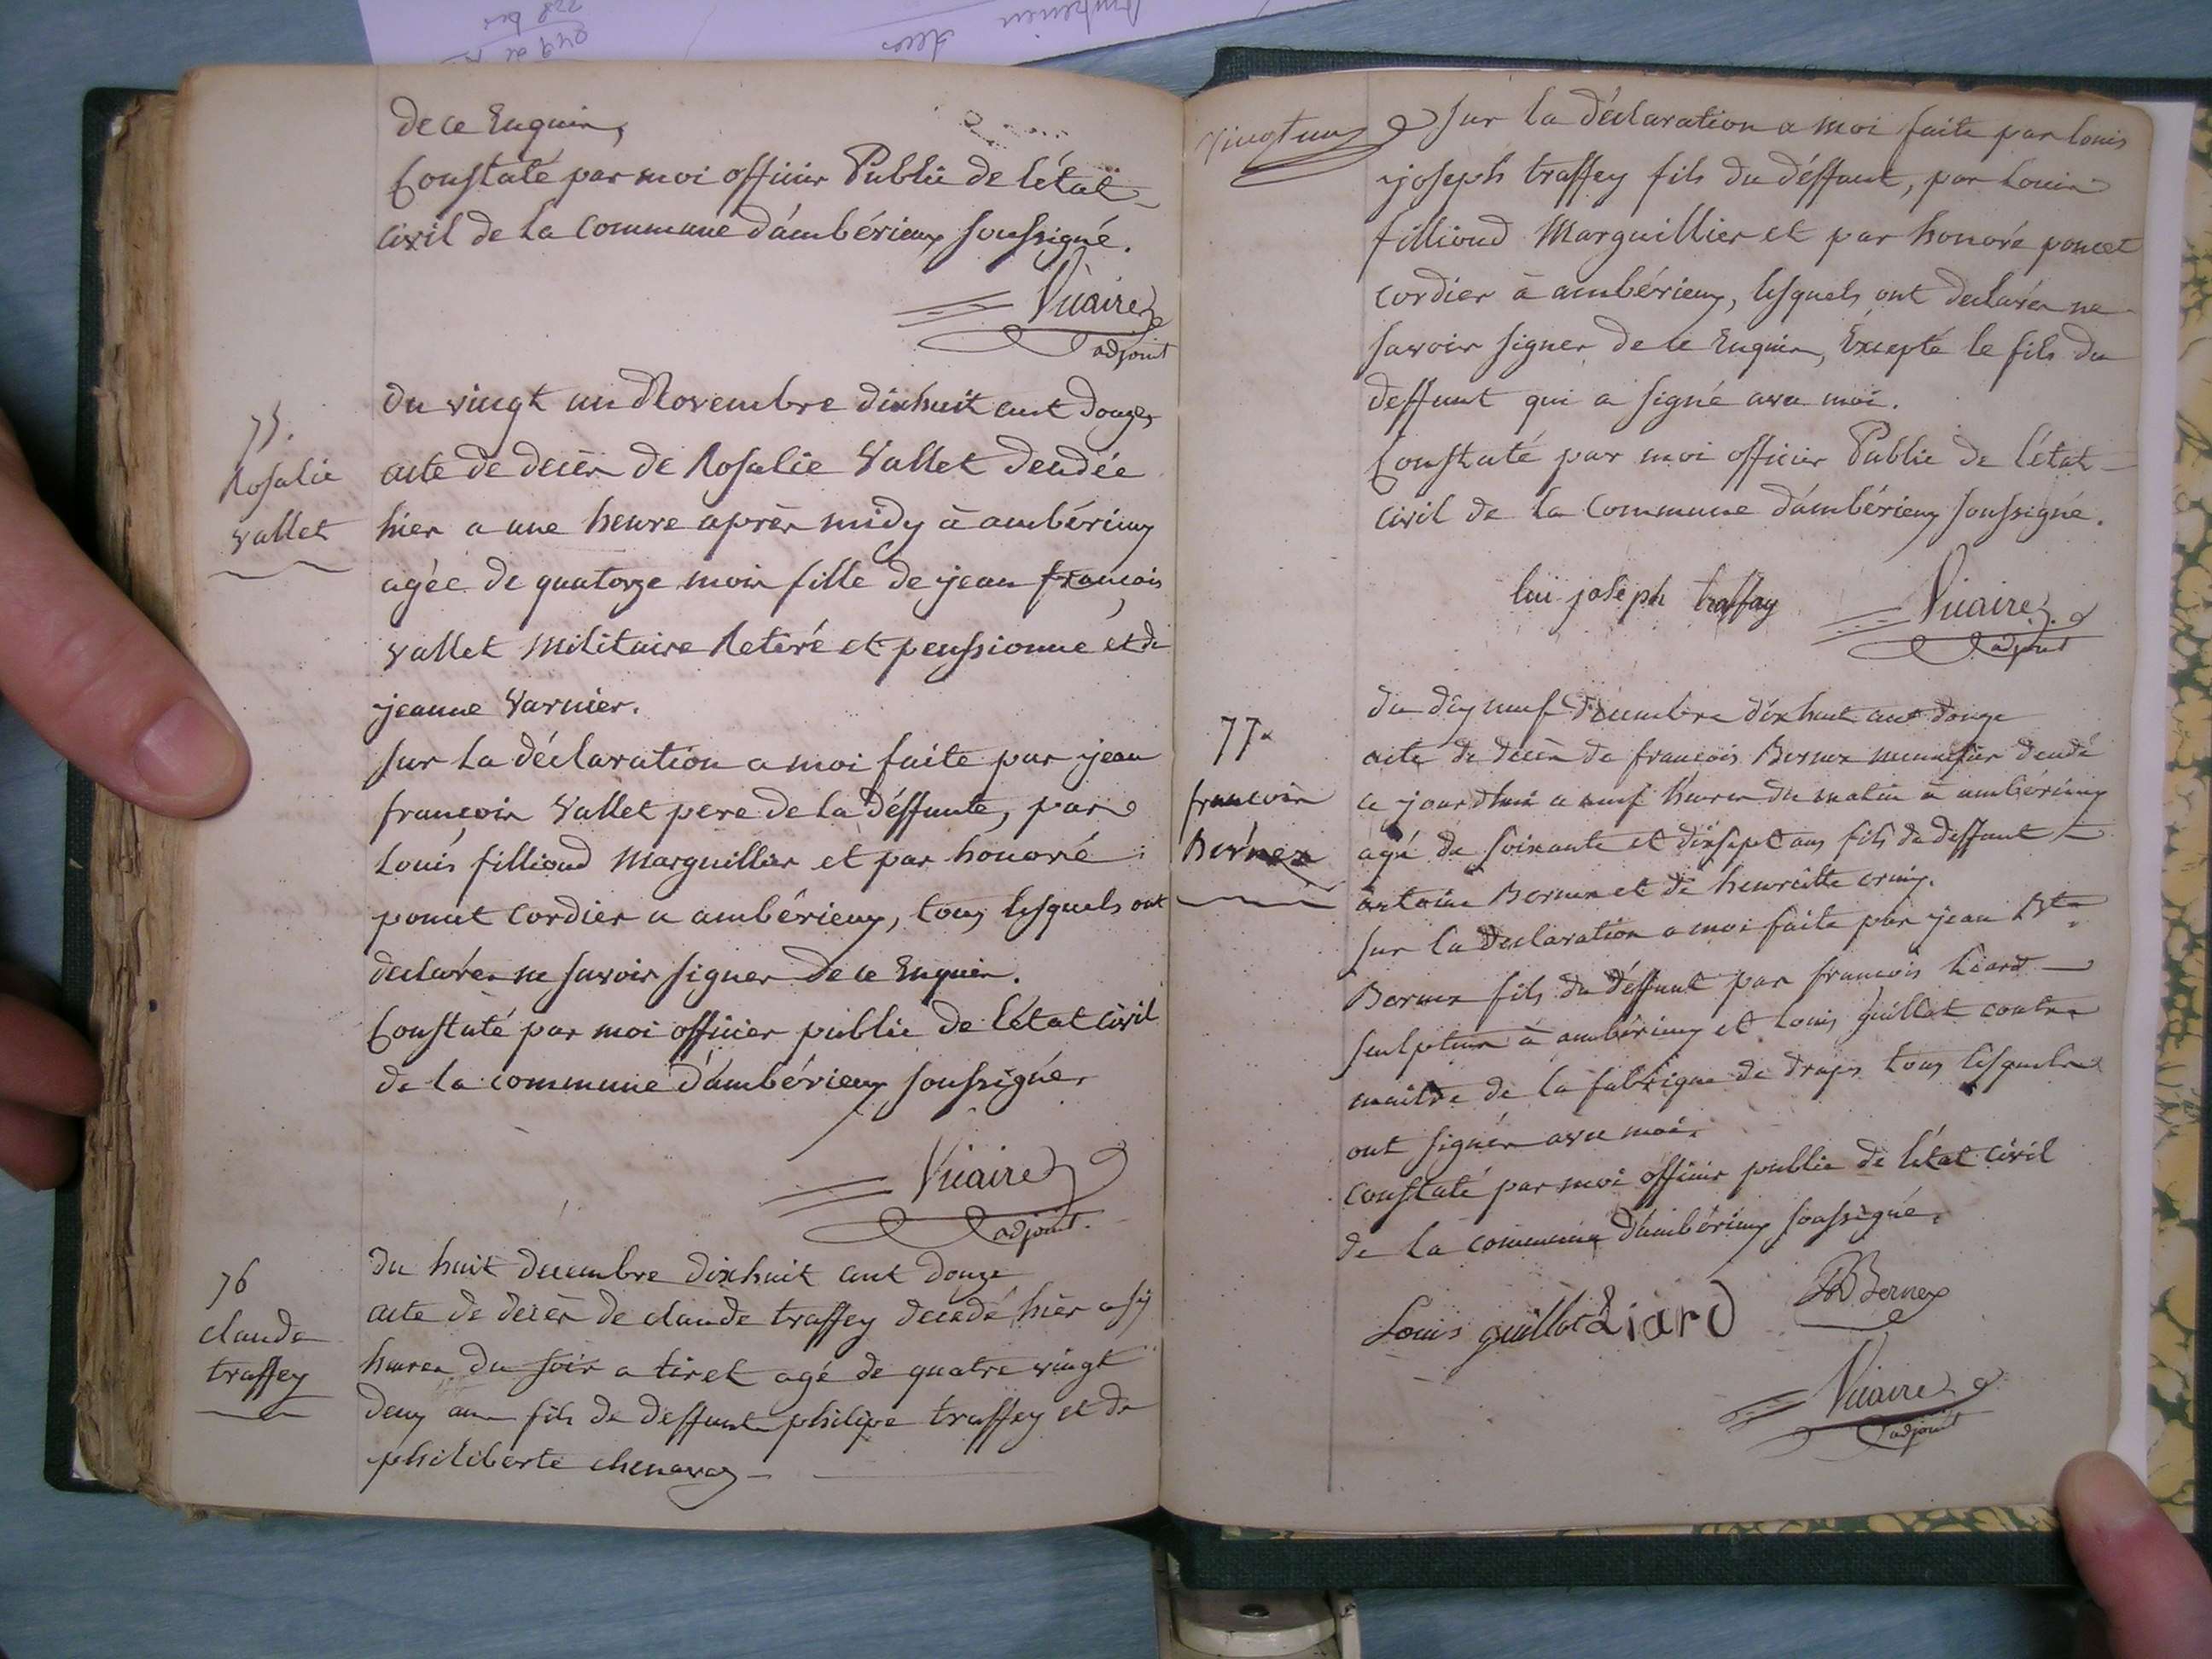 de ce Enquis,
Constaté par moi officier Public de létat
civil de la Commune dámbérieux soussigné.
Vicaire
adjoint
75.
Rosalie
vallet
du vingt un Novembre dixhuit cent douze,
acte de decès de Rosalie Vallet décédée
hier a une heure après midy à ambérieux
agée de quatorze mois fille de jean françois
vallet Militaire Retiré et penssionné et de
jeanne Varnier.
sur la déclaration a moi faite par jean
françois Vallet pere de la déffunte, par
Louis fillioud Marguillier et par honoré
poncet cordier a ambérieux, tous lesquels ont
déclarés ne savoir signer de ce Enquis.
Constaté par moi officier public de létat civil
de la commune dámbérieux soussigné.
Vicaire
adjoint.
76
claude
traffey
du huit decembre dixhuit cent douze
acte de decès de claude traffey decedé hier a six
heures du soir a tiret agé de quatre vingt
deux ans fils de deffunt philipe traffey et de
philiberte chenavaz
vingt un
sur la déclaration a moi faite par louis
joseph traffey fils du déffunt, par Louis
fillioud Marguillier et par honoré poncet
cordier à ambérieux, lesquels ont déclarés ne
savoir signer de ce Enquis, Excepté le fils du
deffunt qui a signé avec moi.
Constaté par moi officier Public de létat
civil de la Commune dámbérieux soussigné.
lui joseph traffay
Vicaire
adjoint
77.
françois
Bernex
du dix neuf décembre dix huit cent douze
acte de decès de françois Bernex menuisier décédé
ce jourdhui a neuf heures du matin à ambérieux
agé de soixante et dixsept ans fils de deffunt
antoine Bernex et de henriette
sur la déclaration a moi faite par jean Bte
Bernex fils du déffunt par françois Liard
sculpteur à ambérieux et Louis guillot contre
maitre de la fabrique de draps tous lesquels
ont signés avec moi.
constaté par moi officier public de létat civil
de la commune dámbérieux soussigné.
Louis guillot Liard JB Bernex
Vicaire
adjoint